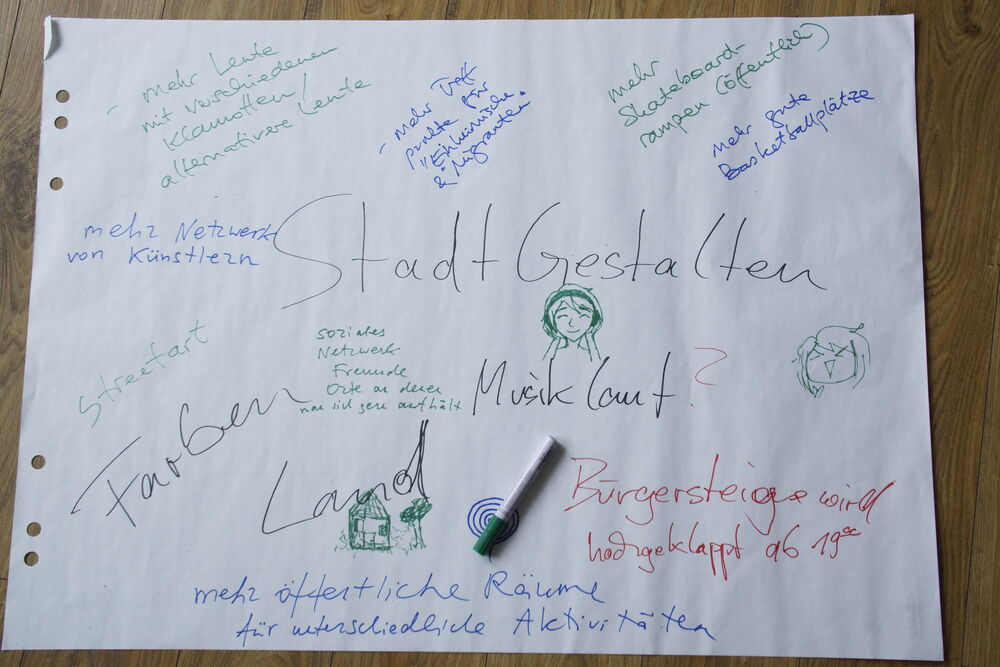 - mehr Leute
mit verschiedenen
Klamotten /
alternativere Leute
- mehr Treff
punkte für
"Einheimische"
& Migranten
mehr
Skateboard-
rampen (öffentlich)
mehr gute
Basketballplätze
mehr Netzwerk
von Künstlern
Stadt Gestalten
Streetart
soziales
Netzwerk
Freunde
Orte an denen
man sich gern aufhält
Musik laut ?
Farben
Land
Bürgersteige wird
hochgeklappt ab 19°°
mehr öffentliche Räume
für unterschiedliche Aktivitäten